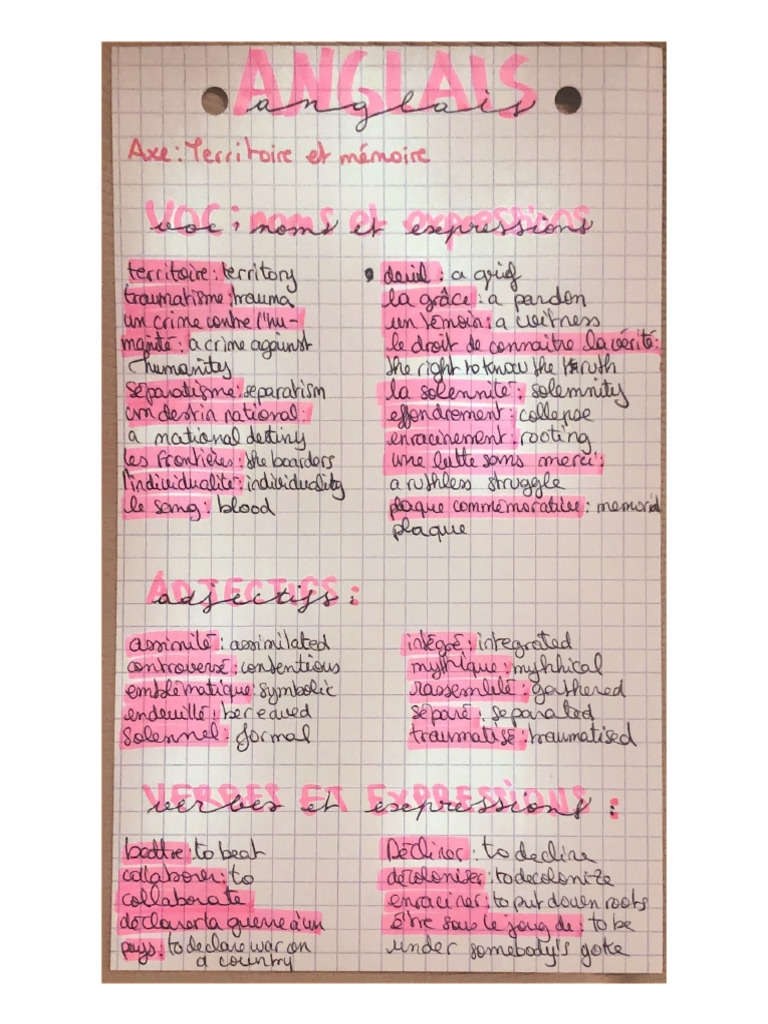 ANGLAIS
anglais
Axe : Territoire et mémoire
VOC : noms et expressions
voc : noms et expressions
territoire : territory
traumatisme : trauma
un crime contre l'hu-
manité : a crime against
humanity
séparatisme : separatism
un destin national :
a national destiny
les frontières : the boarders
l'individualité : individuality
le sang : blood
deuil : a grief
la grâce : a pardon
un témoin : a witness
le droit de connaître la vérité :
the right to know the truth
la solennité : solemnity
effondrement : collapse
enracinement : rooting
une lutte sans merci :
a ruthless struggle
plaque commémorative : memorial
plaque
ADJECTIFS :
adjectifs :
assimilé : assimilated
controversé : contentious
emblématique : symbolic
endeuillé : bereaved
solennel : formal
intégré : integrated
mythique : mythical
rassemblé : gathered
séparé : separated
traumatisé : traumatised
VERBES ET EXPRESSIONS :
verbes et expressions :
battre : to beat
collaborer : to
collaborate
déclarer la guerre à un
pays : to declare war on
a country
Décliner : to decline
décoloniser : to decolonize
enraciner : to put down roots
être sous le joug de : to be
under somebody's goke